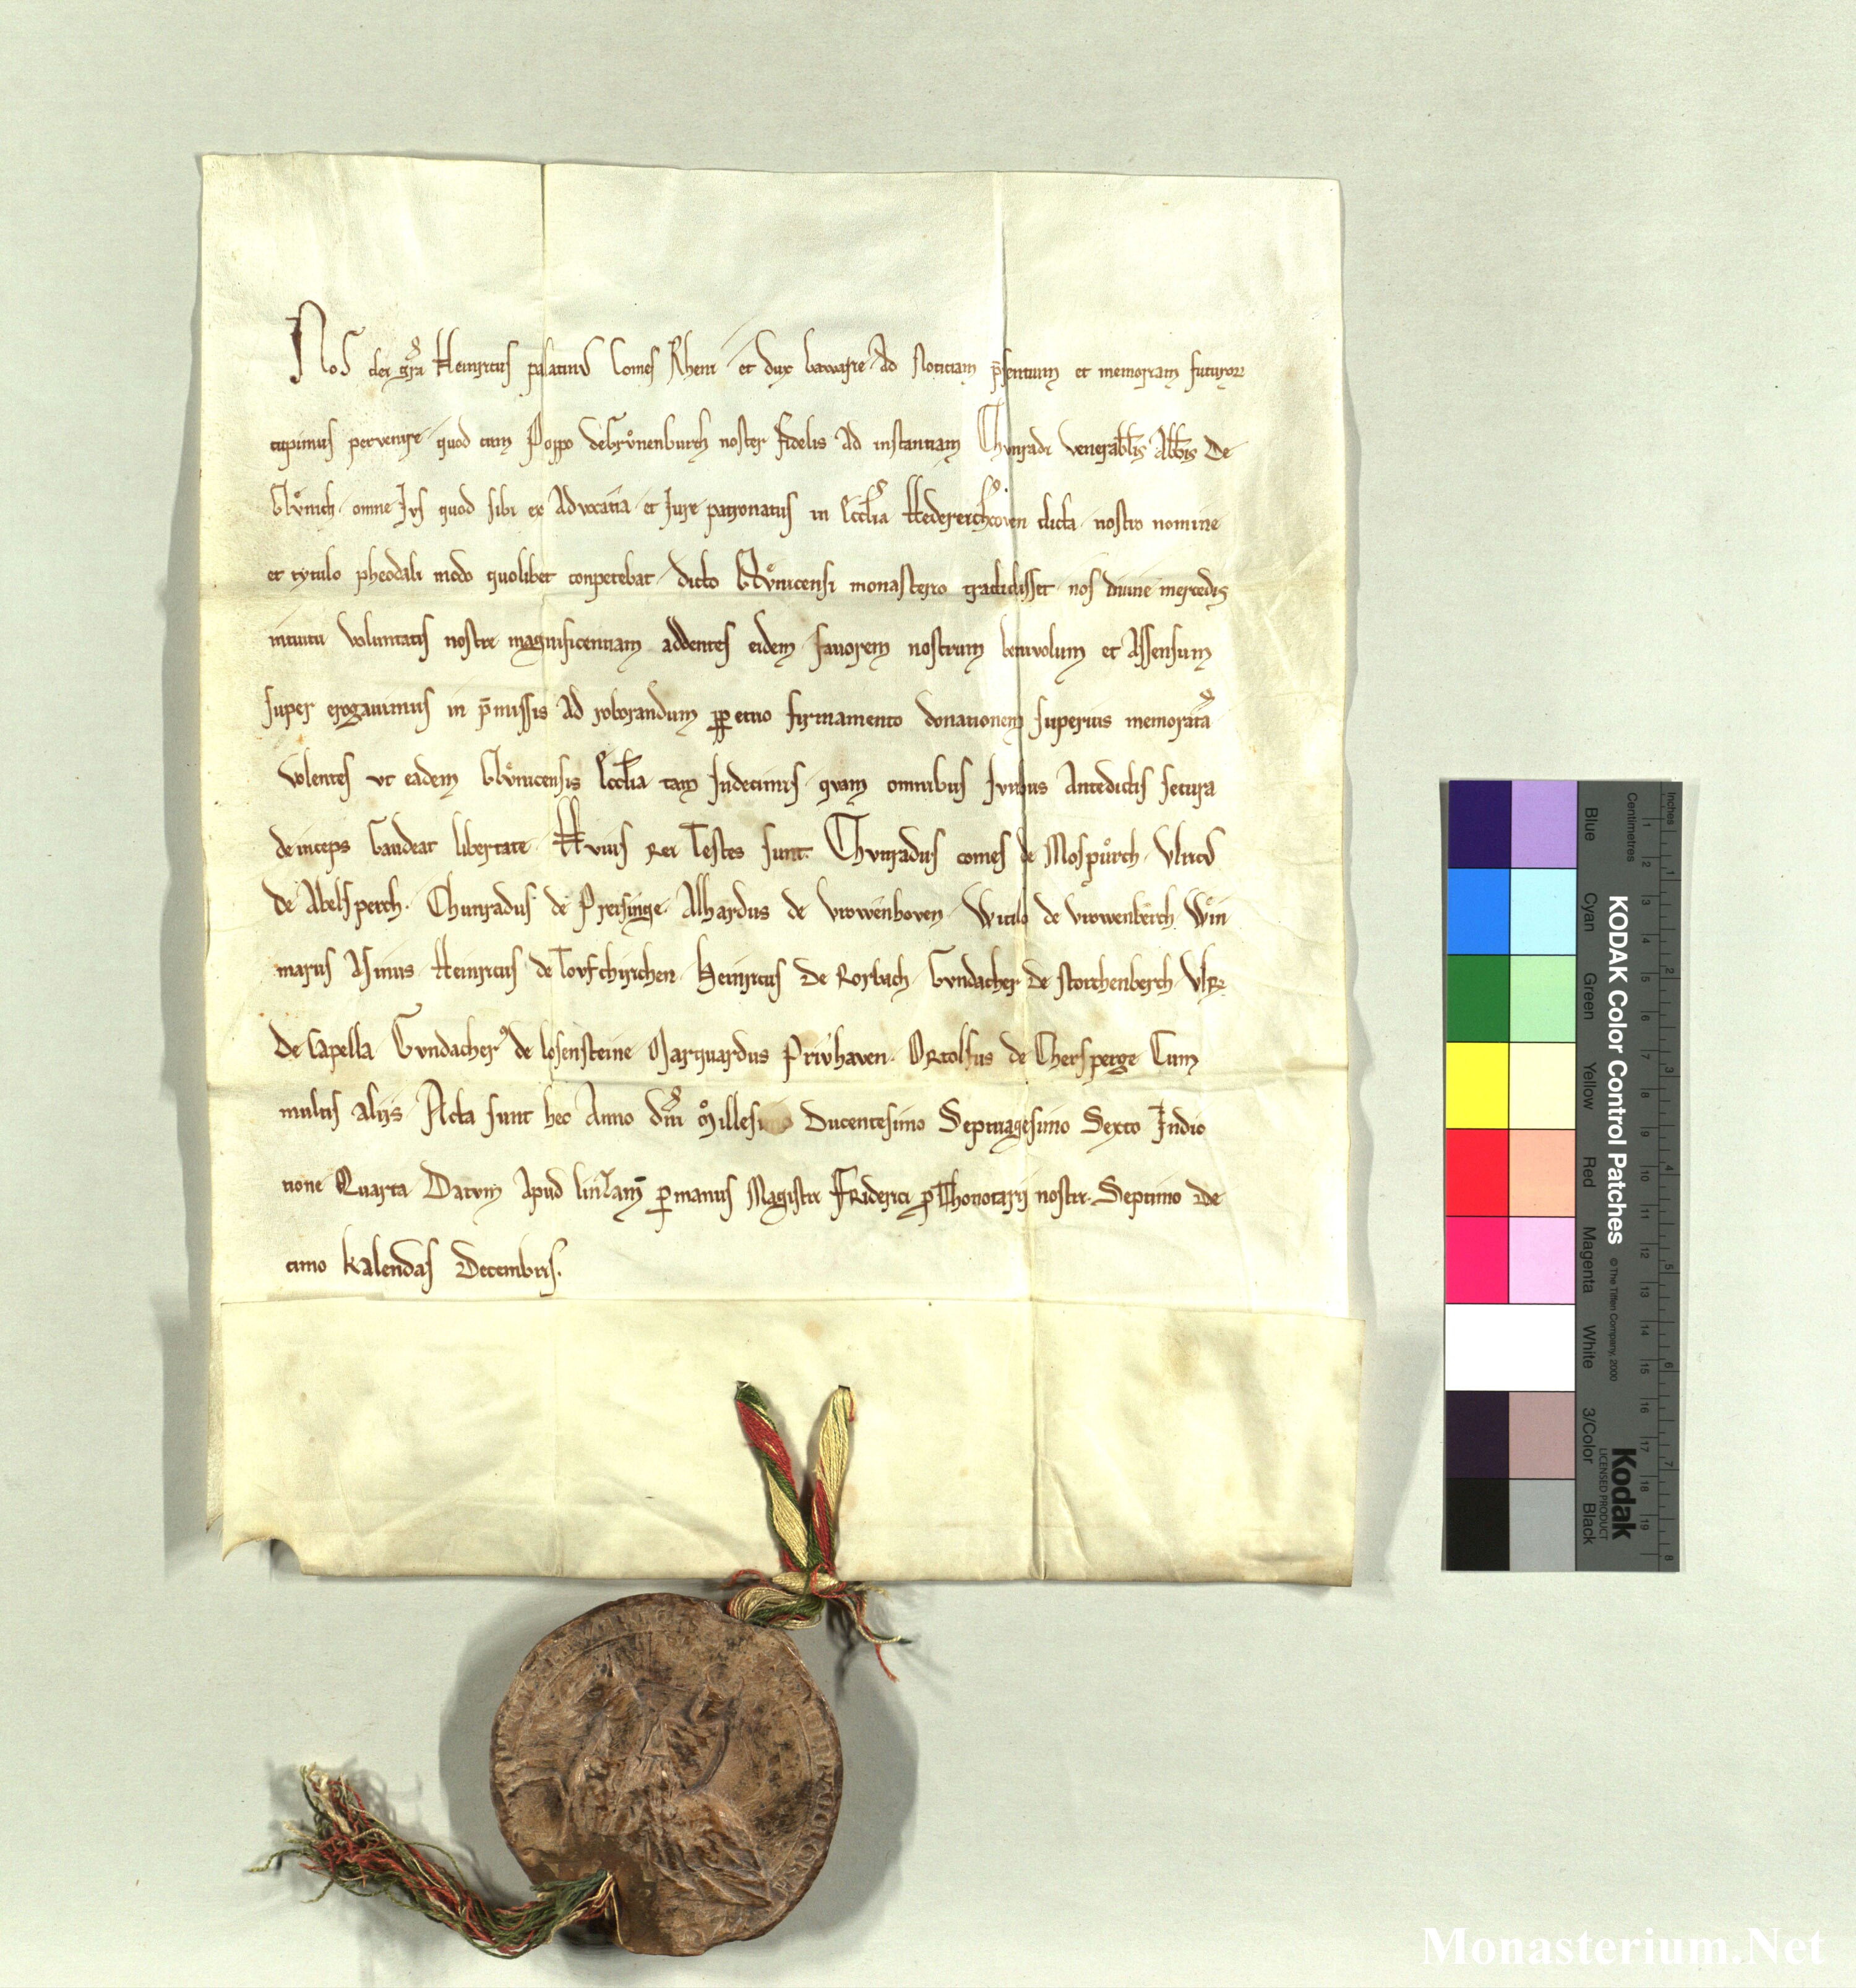 Nos dei gr̃a Heinricus palatinus Comes Rheni et dux bawarie Ad Noticiam p̃sentium et memoriam futurorꝝ
cupimus pervenire quod cum Poppo de Grůnenburch noster fidelis Ad instantiam Chvnradi venerabił Abb̃is De
Glvͦnich omne Jvs quod sibi ex Advocatia et Jure patronatus in Eccƚia Hedereichshoven dicta nostro nomine
et tytulo pheodali modo quolibet conpetebat dicto Glvͦnicensi monasterio tradidisset nos divine mercedis
intuitu voluntatis nostre magnificentiam addentes eidem favorem nostrum benivolum et Assensum
super erogavimus in p̃missis Ad roborandum ꝑpetuo firmamento donationem superius memoratã
volentes vt eadem Glvͦnicensis Eccƚia tam Indecimis quam omnibus Jvribus Antedictis secura
deinceps Gaudeat libertate Hvius rei Testes sunt Chvnradus comes de Mospůrch Vlricus
de Abelsperch. Chunradus de Preisinge. Alhardus de Vrowenhoven Witilo de Vrowenberch Win
marus Asinus Heinricus de Tovfchirchen Heinricus De Rorbach Gvndacher de Storchenberch Vlr
De Capella Gvndacherꝰ de losensteine Marquardus Privhaven. Ortolfus de Chersperge Cum
multis alijs Acta sunt hec Anno dñi Millesimo Ducentesimo Septuagesimo Sexto Indic
tione Quarta Datvm Apud linzam ꝑ manus Magistri Friderici ꝓthonotarij nostri. Septimo De
cimo Kalendas Decembris.
KODAK Color Control Patches
© The Tiffen Company, 2000
Kodak
LICENSED PRODUCT
Inches
Centimetres
1 2 3 4 5 6 7 8
1 2 3 4 5 6 7 8 9 10 11 12 13 14 15 16 17 18 19
Blue
Cyan
Green
Yellow
Red
Magenta
White
3/Color
Black
Monasterium.Net